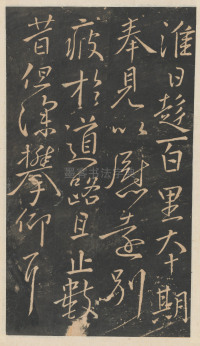 淮日趍百里大十期
奉見以慰遠別
疲於道路且止數
昔但深攀仰耳